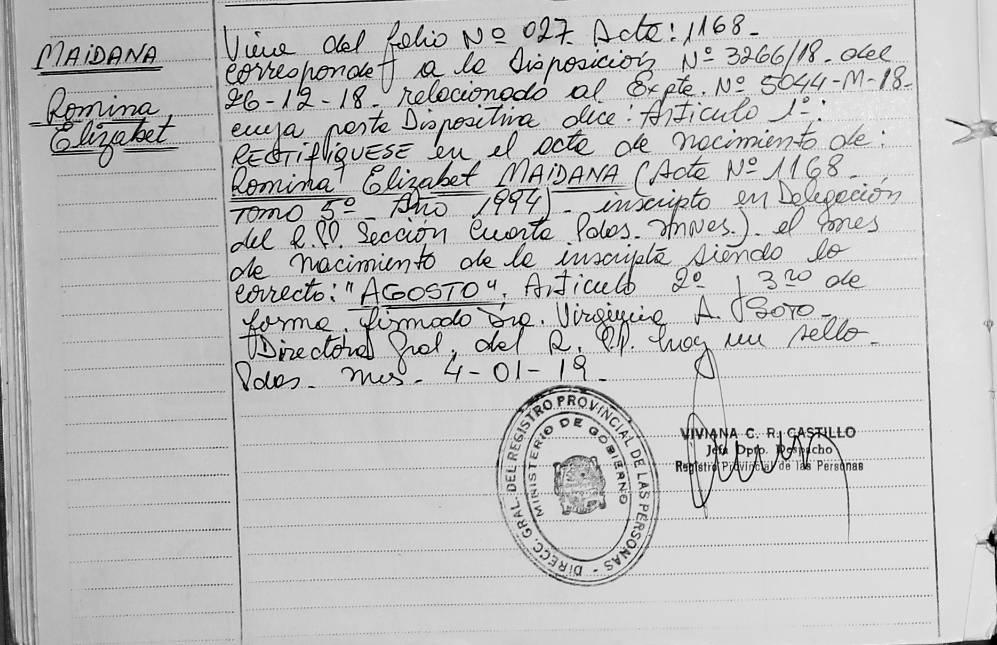 MAIDANA
Romina
Elizabet
Viene del folio Nº 027. Acta: 1168.
corresponde a la Disposición Nº 3266/18. del
26-12-18. relacionado al Expte. Nº 5044-M-18-
cuya parte Dispositiva dice: Artículo 1º:
RECTIFIQUESE en el acta de nacimiento de:
Romina Elizabet MAIDANA (Acta Nº 1168.
Tomo 5º - Año 1994) - inscripto en Delegación
del R.PP. Sección Cuarta Pdas. Mnes.). el mes
de nacimiento de la inscripta siendo lo
correcto: "AGOSTO". Artículo 2º y 3ro de
forma. firmado Dra. Virginia A. Soto-
Directora Gral. del R. PP. hay un sello-
Pdas. Mes. 4-01-19.
DIRECC. GRAL. DEL REGISTRO PROVINCIAL DE LAS PERSONAS - 
MINISTERIO DE GOBIERNO
VIVIANA C. R. CASTILLO
Jefa Dpto. Despacho
Registro Provincial de las Personas